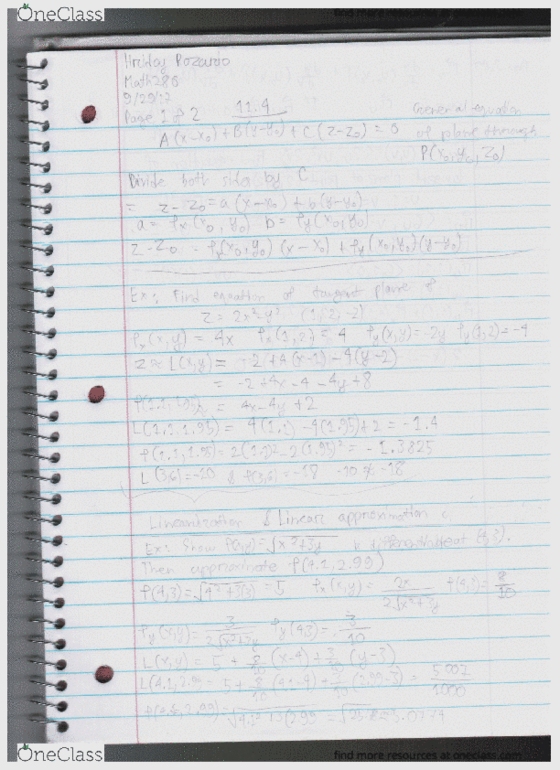 OneClass
find more resources at oneclass.com
Math 286
9/29/17
Page 1 of 2 11.4 General equation
A(x-x₀) + B(y-y₀) + C(z-z₀) = 0 of plane through
P(x₀, y₀, z₀)
Divide both sides by C
= z-z₀ = a(x-x₀) + b(y-y₀)
a = fx(x₀, y₀) b = fy(x₀, y₀)
z-z₀ = fx(x₀, y₀)(x-x₀) + fy(x₀, y₀)(y-y₀)
Ex: Find equation of tangent plane
z = 2x²-y² (1, 2, -2)
fx(x,y) = 4x fx(1,2) = 4 fy(x,y) = -2y fy(1,2) = -4
z ≈ L(x,y) = -2+4(x-1)-4(y-2)
= -2+4x-4-4y+8
f(1.1, 1.95) = 4x-4y+2
L(1.1, 1.95) = 4(1.1)-4(1.95)+2 = -1.4
f(1.1, 1.95) = 2(1.1)²-(1.95)² = -1.3825
L(3,6) = -10 & f(3,6) = -18 -10 ≉ -18
Linearization & Linear approximation
Ex: Show f(x,y) = √x²+3y is differentiable at (4,3).
Then approximate f(4.1, 2.99)
f(4,3) = √4²+3(3) = 5 fx(x,y) = 2x/2√x²+3y f(4,3) = 8/10
fy(x,y) = 3/2√x²+3y fy(4,3) = 3/10
L(x,y) = 5 + 8/10 (x-4) + 3/10 (y-3)
L(4.1, 2.99) = 5 + 8/10 (4.1-4) + 3/10 (2.99-3) =
OneClass
find more resources at oneclass.com